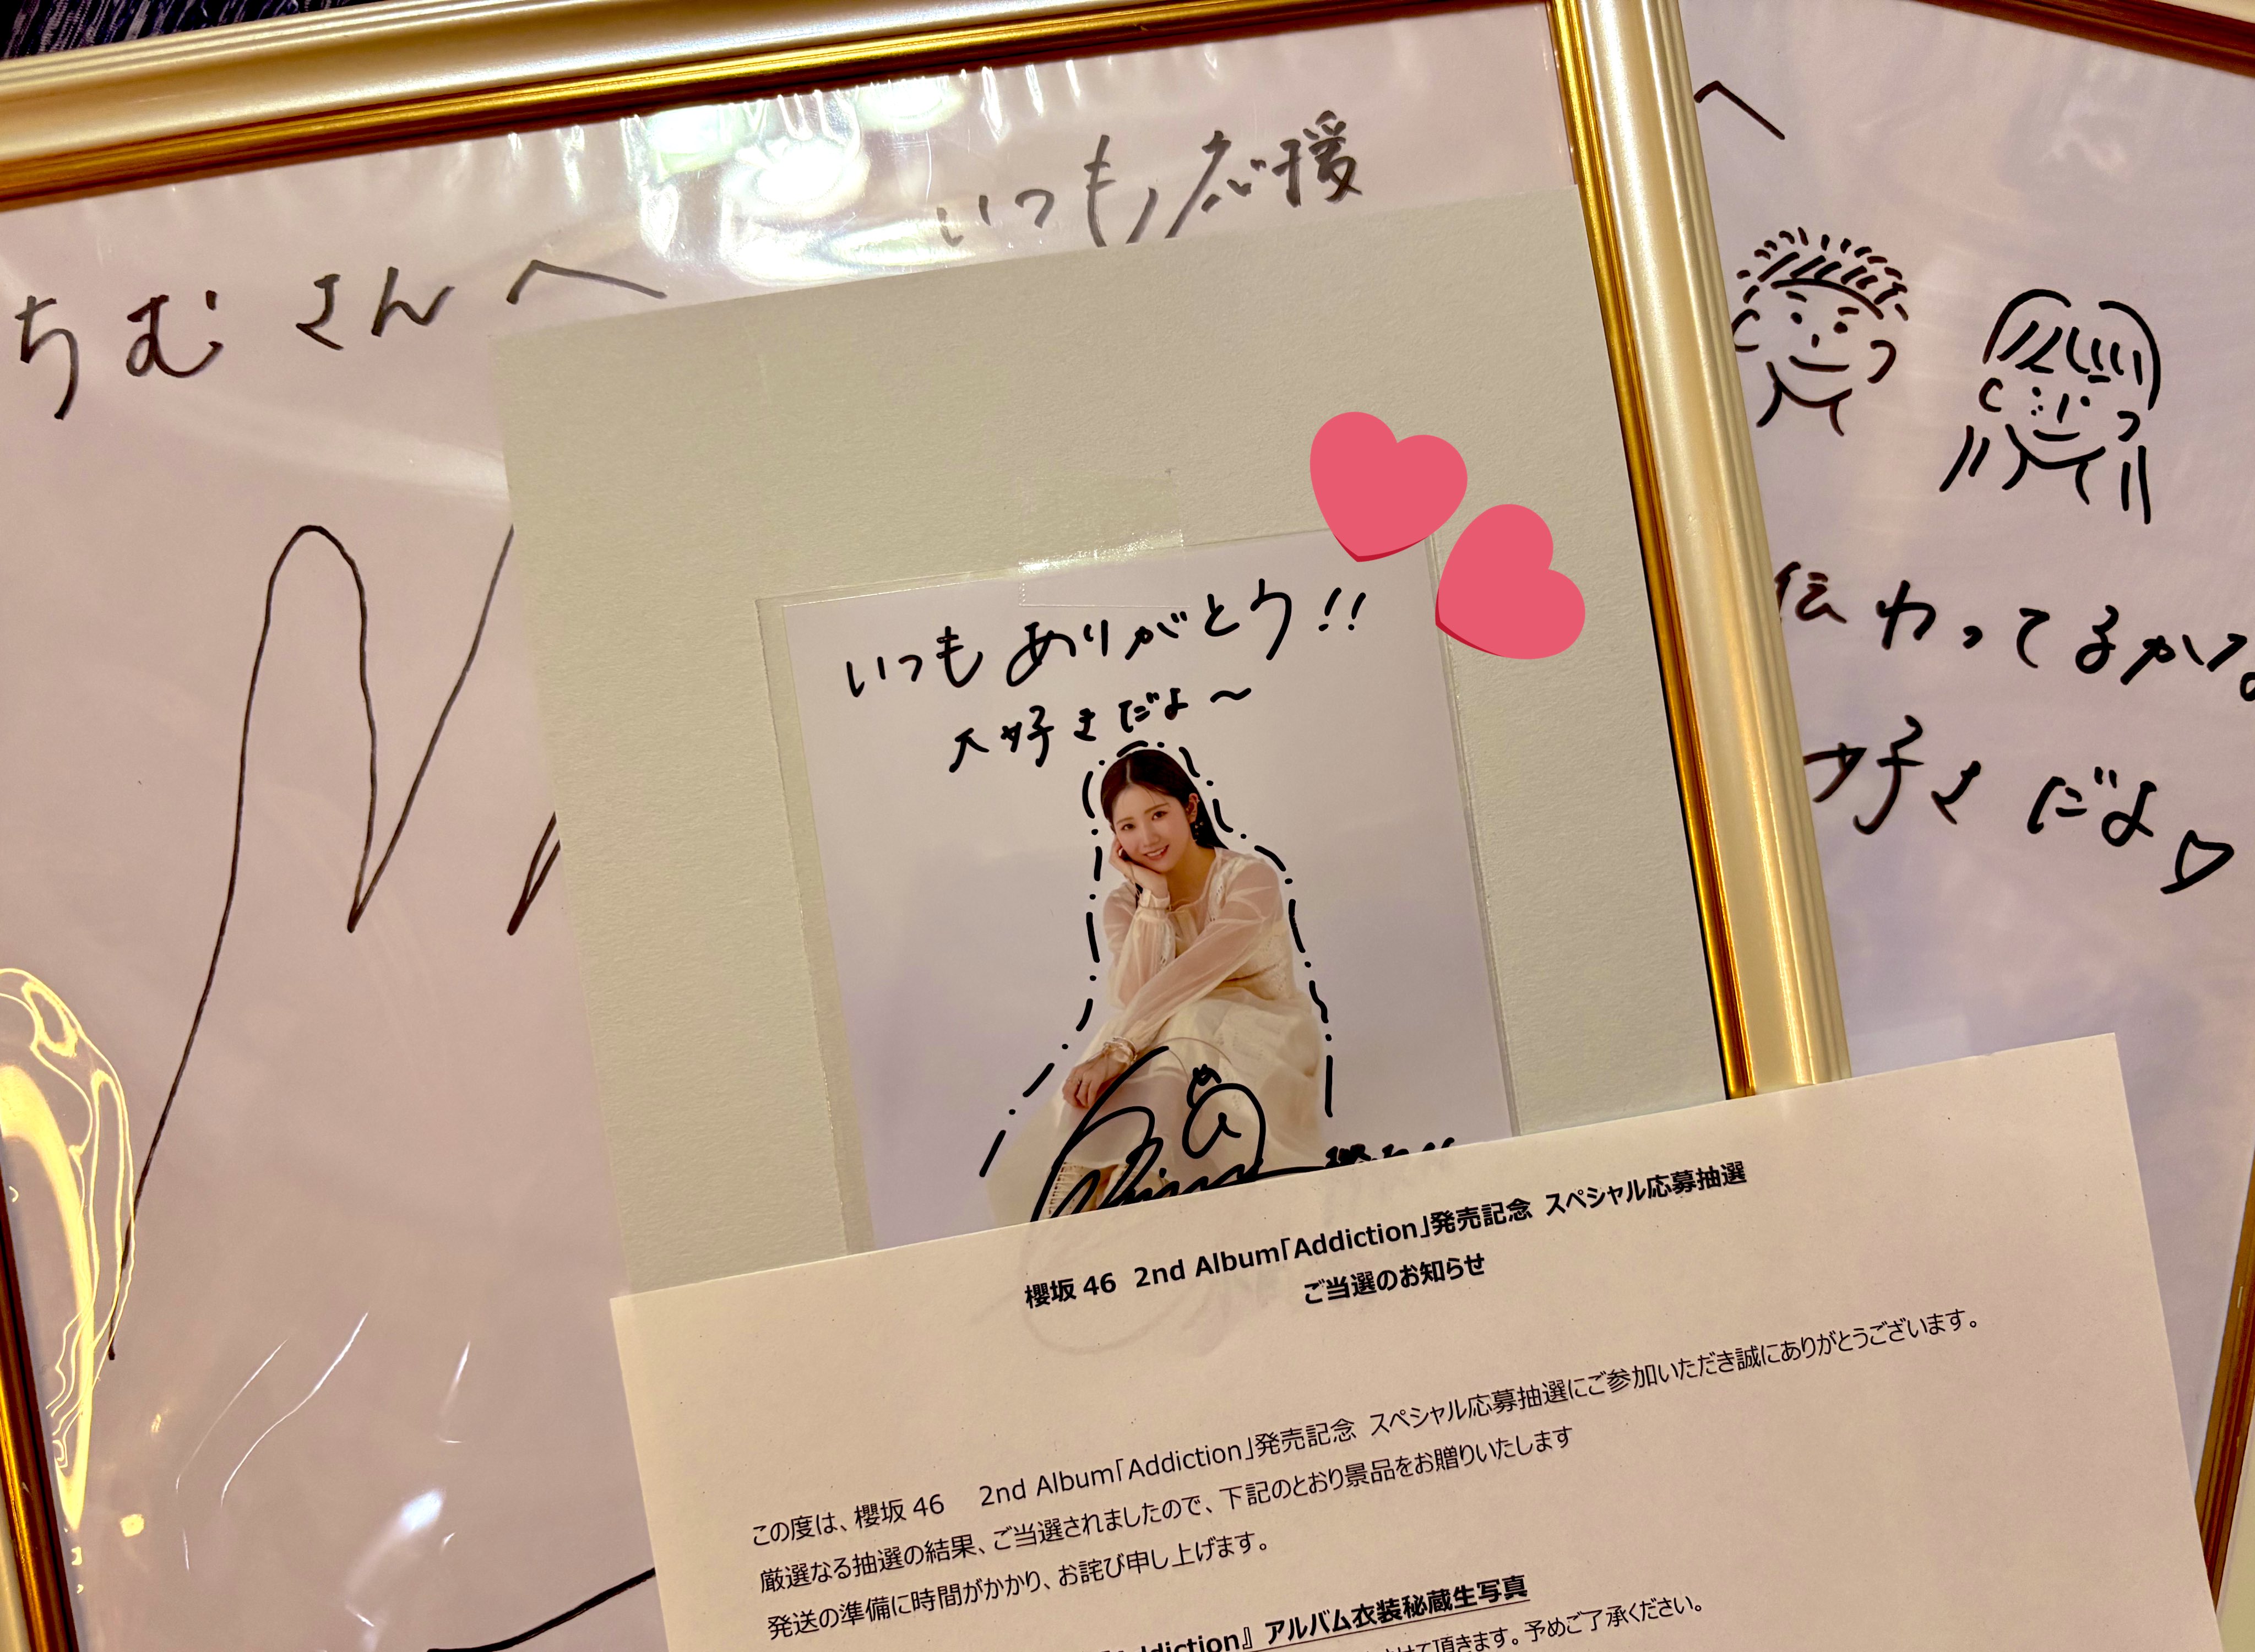 ちむさんへ
いつも応援
へ
伝わってるかな
好きだよ♡
いつもありがとう!!
大好きだよ〜
櫻坂46 2nd Album「Addiction」発売記念 スペシャル応募抽選
ご当選のお知らせ
この度は、櫻坂46 2nd Album「Addiction」発売記念 スペシャル応募抽選にご参加いただき誠にありがとうございます。
厳選なる抽選の結果、ご当選されましたので、下記のとおり景品をお贈りいたします
発送の準備に時間がかかり、お詫び申し上げます。
ddiction』アルバム衣装秘蔵生写真
させて頂きます。予めご了承ください。